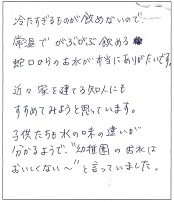 冷たすぎるものが飲めないので
常温でがぶがぶ飲める
蛇口からのお水が本当にありがたいです。
近々家を建てる知人にも
すすめてみようと思っています。
子供たちも水の味の違いが
分かるようで、"幼稚園のお水は
おいしくない〜"と言っていました。